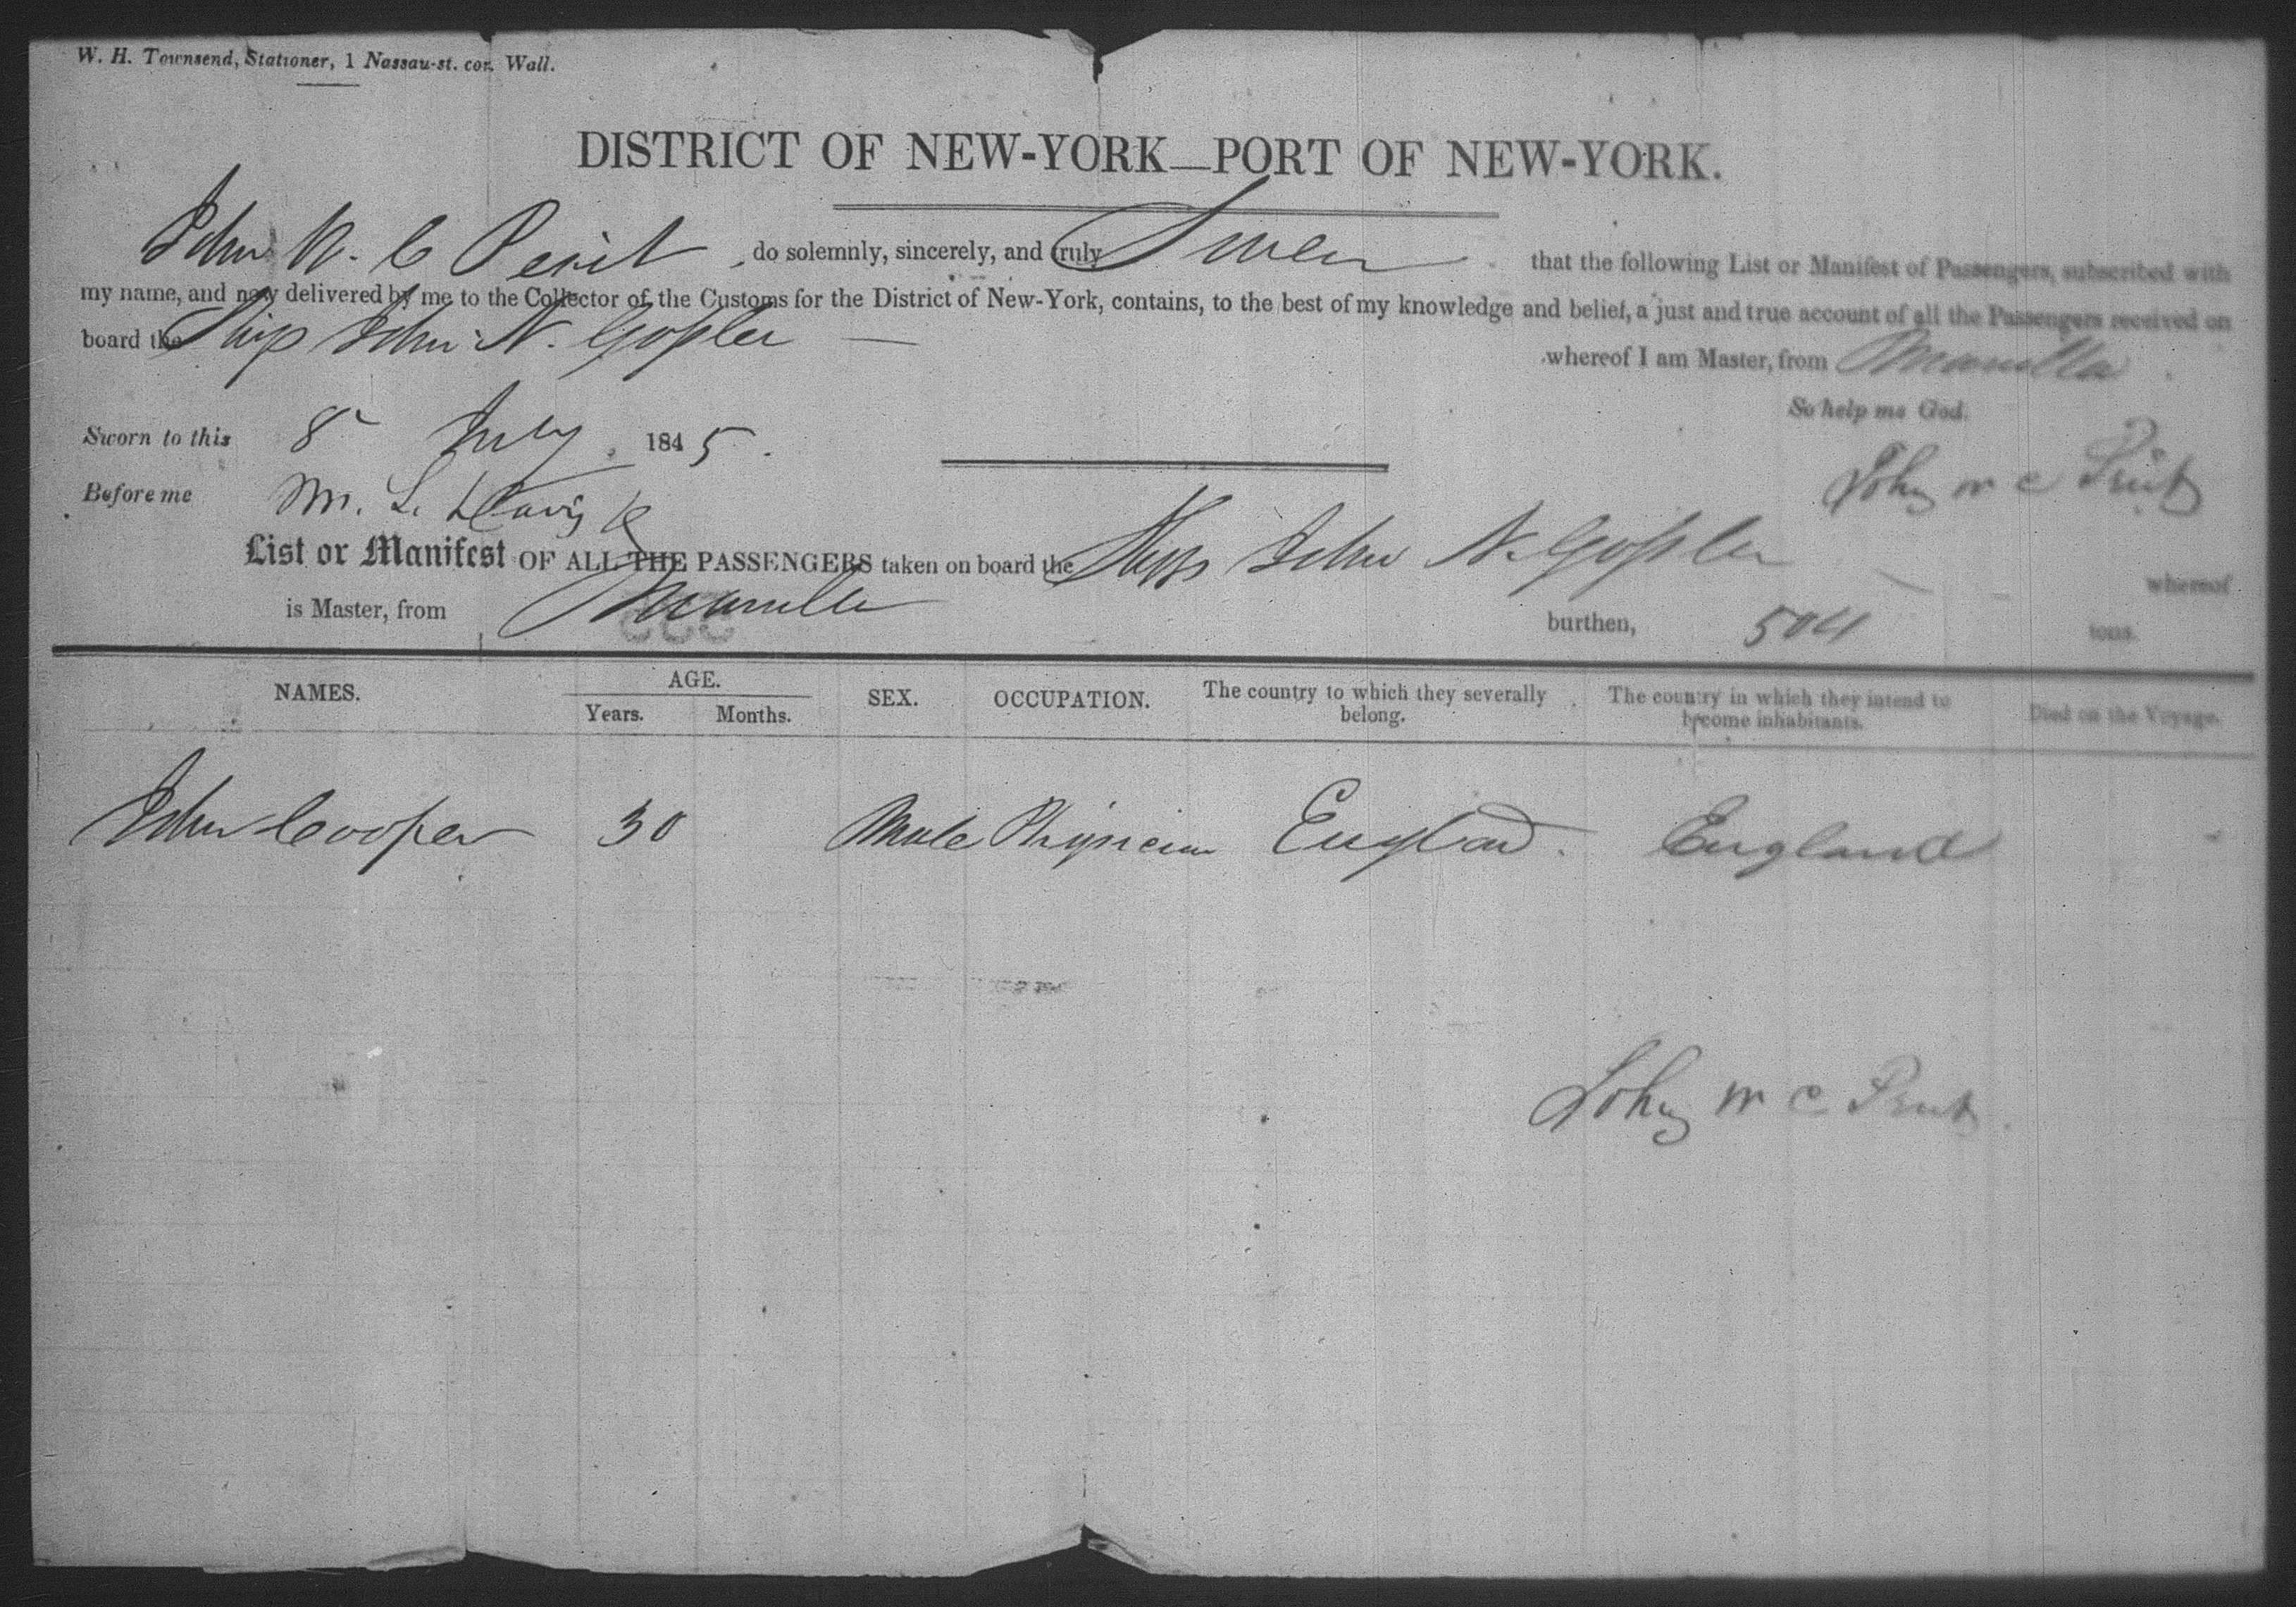 W. H. Townsend, Stationer, 1 Nassau-st. cor. Wall.
DISTRICT OF NEW-YORK—PORT OF NEW-YORK.
John W. C Perit, do solemnly, sincerely, and truly Swear that the following List or Manifest of Passengers, subscribed with
my name, and now delivered by me to the Collector of the Customs for the District of New-York, contains, to the best of my knowledge and belief, a just and true account of all the Passengers received on
board the Ship John N. Gossler whereof I am Master, from Manilla
So help me God.
Sworn to this 8 July 1845.
John W C
Before me M. L. Davis
List or Manifest OF ALL THE PASSENGERS taken on board the Ship John N. Gossler whereof
is Master, from Manilla burthen, 504 tons.
NAMES. AGE. SEX. OCCUPATION. The country to which they severally belong. The country in which they intend to become inhabitants. Died on the Voyage.
Years. Months.
John Cooper 30 Male Physician England. England
John W C